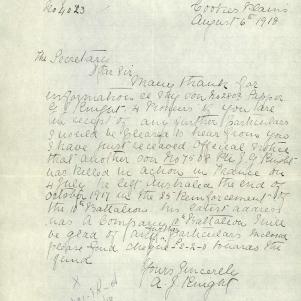 No 4023
Cookes Plains
August 6th 1918
The Secretary
Dear Sir
Many thanks for
information re My son No 2803 Sapper
Knight 4 Pioneers if you are
in receipt of any further particulars
I would be pleased to hear from you
I have just received Official Notice
that another son No 7508 Pte J. J. Knight
was killed in action in France on
4 July he left Australia the end of
October 1917 in the 25 Reinforcement of
the 10 Battalion his latest address
was A Company Battalion I will
be glad of particulars Enclosed
please find cheque £2-2-0 towards the
fund
Yours Sincerely
A. J. Knight